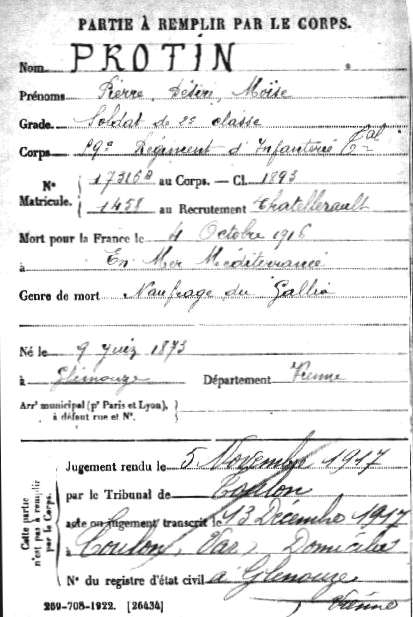 PARTIE À REMPLIR PAR LE CORPS.
Nom PROTIN
Prénoms Pierre, Désiré, Moïse
Grade Soldat de 2e classe
Corps 59e Régiment d'Infanterie Cal
N° Matricule. 17316 au Corps. — Cl. 1893
1458 au Recrutement Chatellerault
Mort pour la France le 4 Octobre 1916
à En Mer Méditerranée
Genre de mort Naufrage du Gallia
Né le 9 Juin 1873
à Glénouze Département Vienne
Arrt municipal (pr Paris et Lyon),
à défaut rue et N°.
Cette partie n'est pas à remplir par le Corps.
Jugement rendu le 5 Novembre 1917
par le Tribunal de Toulon
acte ou jugement transcrit le 13 Décembre 1917
à Toulon, Var, Domicilié
N° du registre d'état civil à Glenouze
Vienne
269-708-1922. [26434]